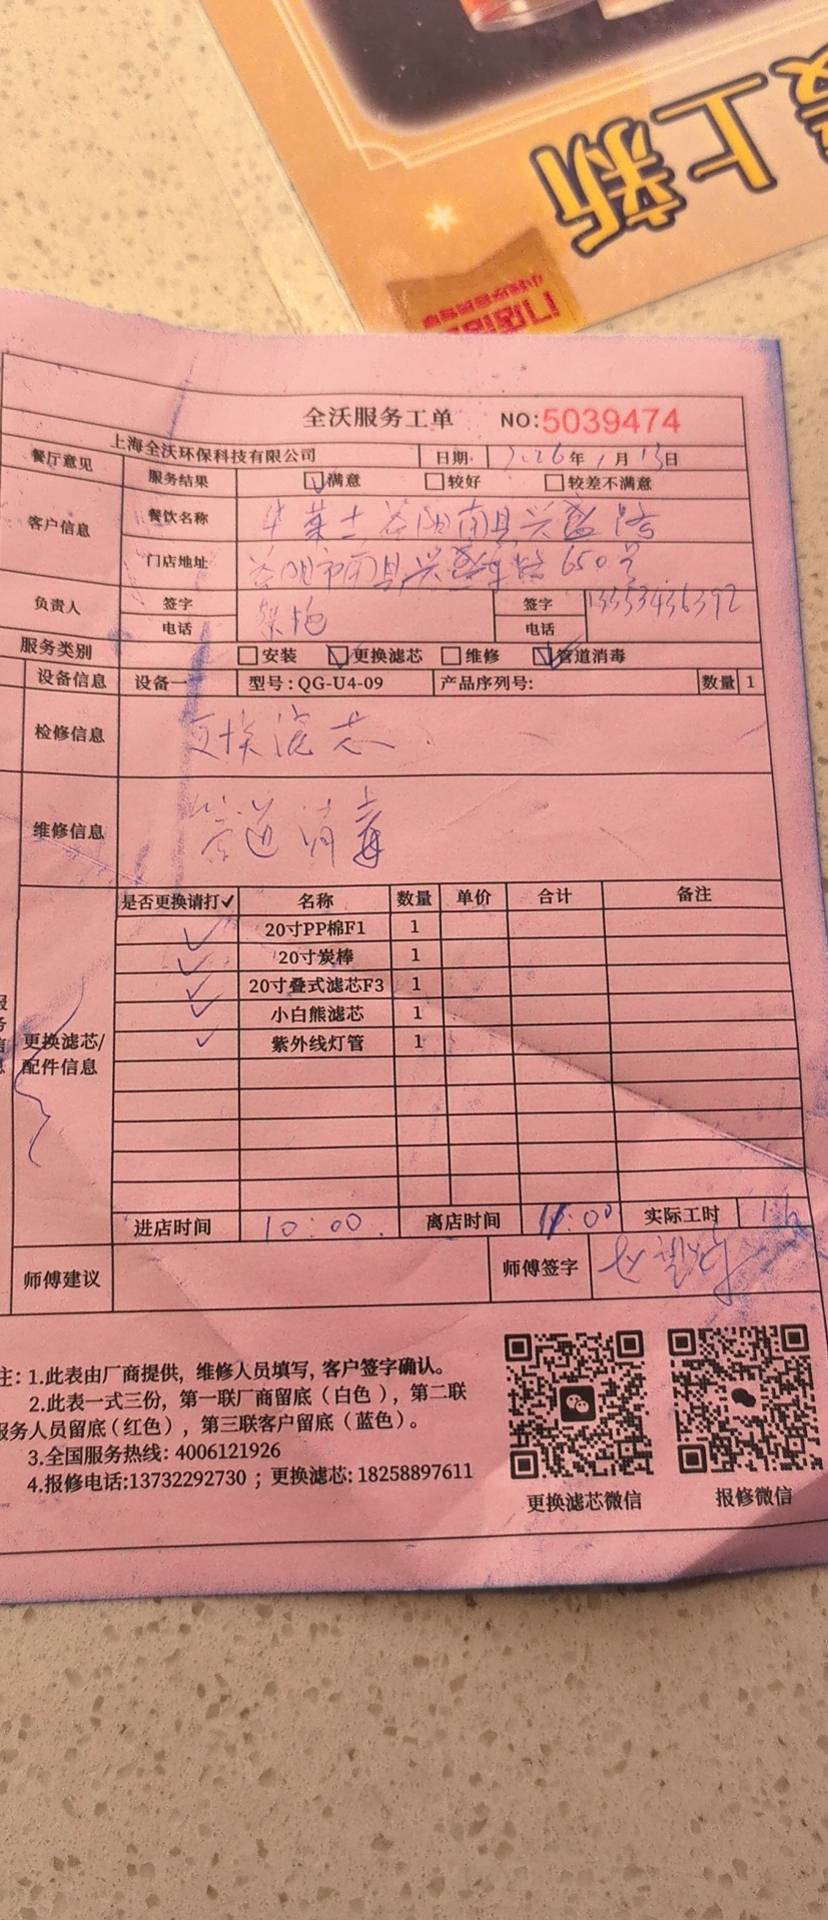 上新
全沃服务工单 NO:5039474
上海全沃环保科技有限公司 日期: 2026年1月13日
餐厅意见 服务结果 满意 较好 较差不满意
客户信息 餐饮名称 华莱士 南县兴盛路
门店地址 市南县兴盛 路650号
负责人 签字 签字
电话 电话 13353436392
服务类别 安装 更换滤芯 维修 管道消毒
设备信息 设备一 型号:QG-U4-09 产品序列号: 数量 1
检修信息 更换滤芯
维修信息 管道消毒
是否更换请打✓ 名称 数量 单价 合计 备注
✓ 20寸PP棉F1 1
✓ 20寸炭棒 1
✓ 20寸叠式滤芯F3 1
✓ 小白熊滤芯 1
✓ 紫外线灯管 1
更换滤芯/
配件信息
进店时间 10:00 离店时间 11:00 实际工时 1h
师傅建议 师傅签字
注: 1.此表由厂商提供, 维修人员填写, 客户签字确认。
2.此表一式三份, 第一联厂商留底(白色), 第二联
服务人员留底(红色), 第三联客户留底(蓝色)。
3.全国服务热线: 4006121926
4.报修电话:13732292730 ; 更换滤芯: 18258897611
更换滤芯微信 报修微信